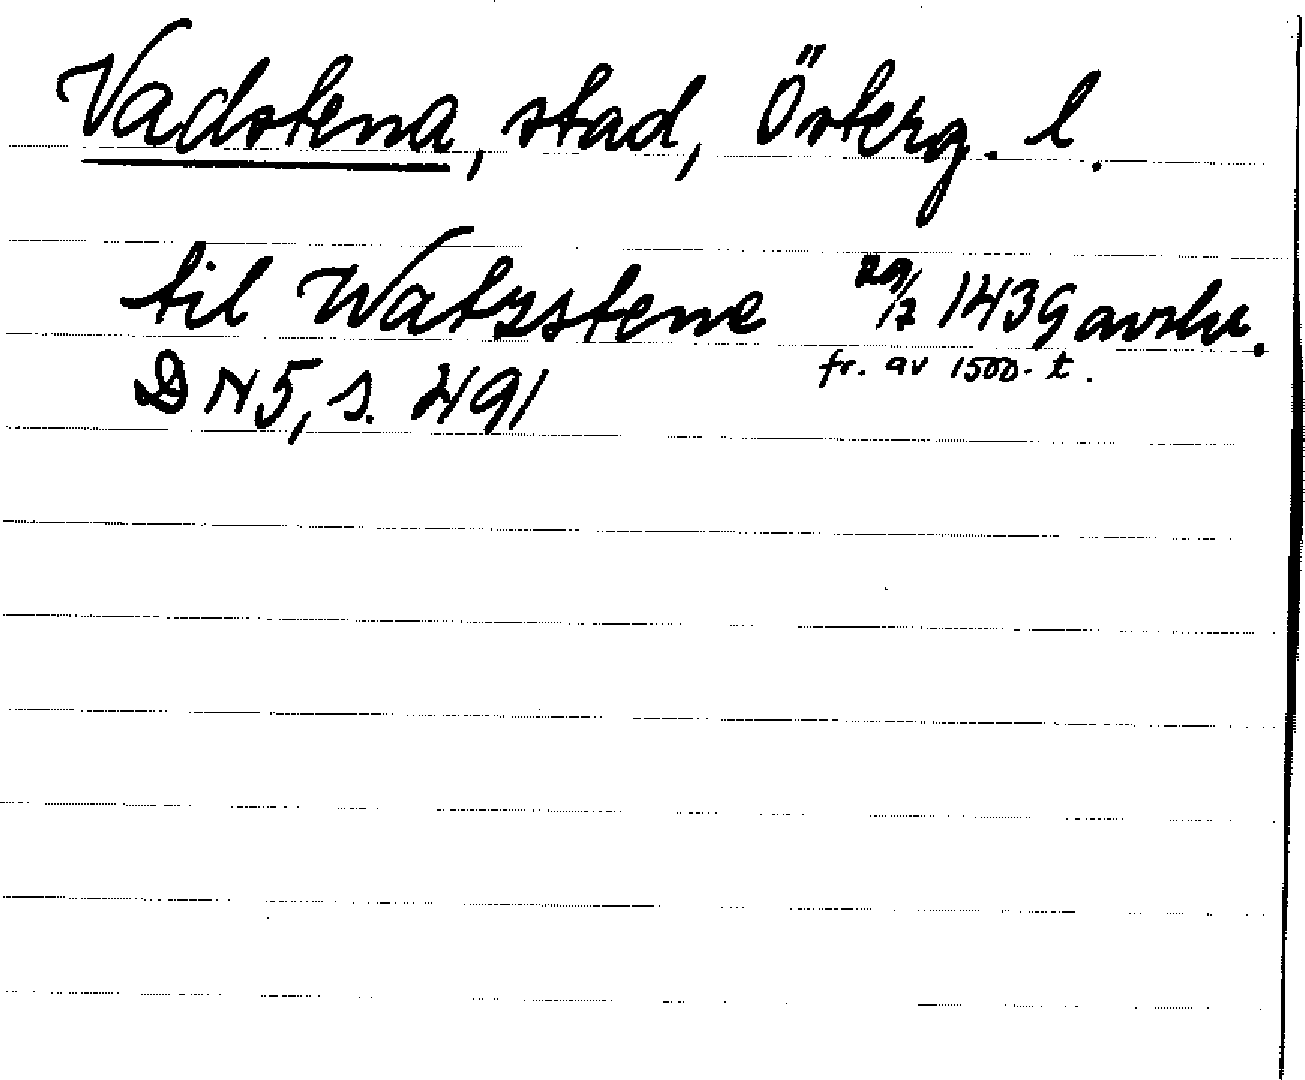 Vadstena, stad, Österg. l.
til Watzstene 29/7 1439 avskr.
fr. av 1500-t.
DN 5, s. 491